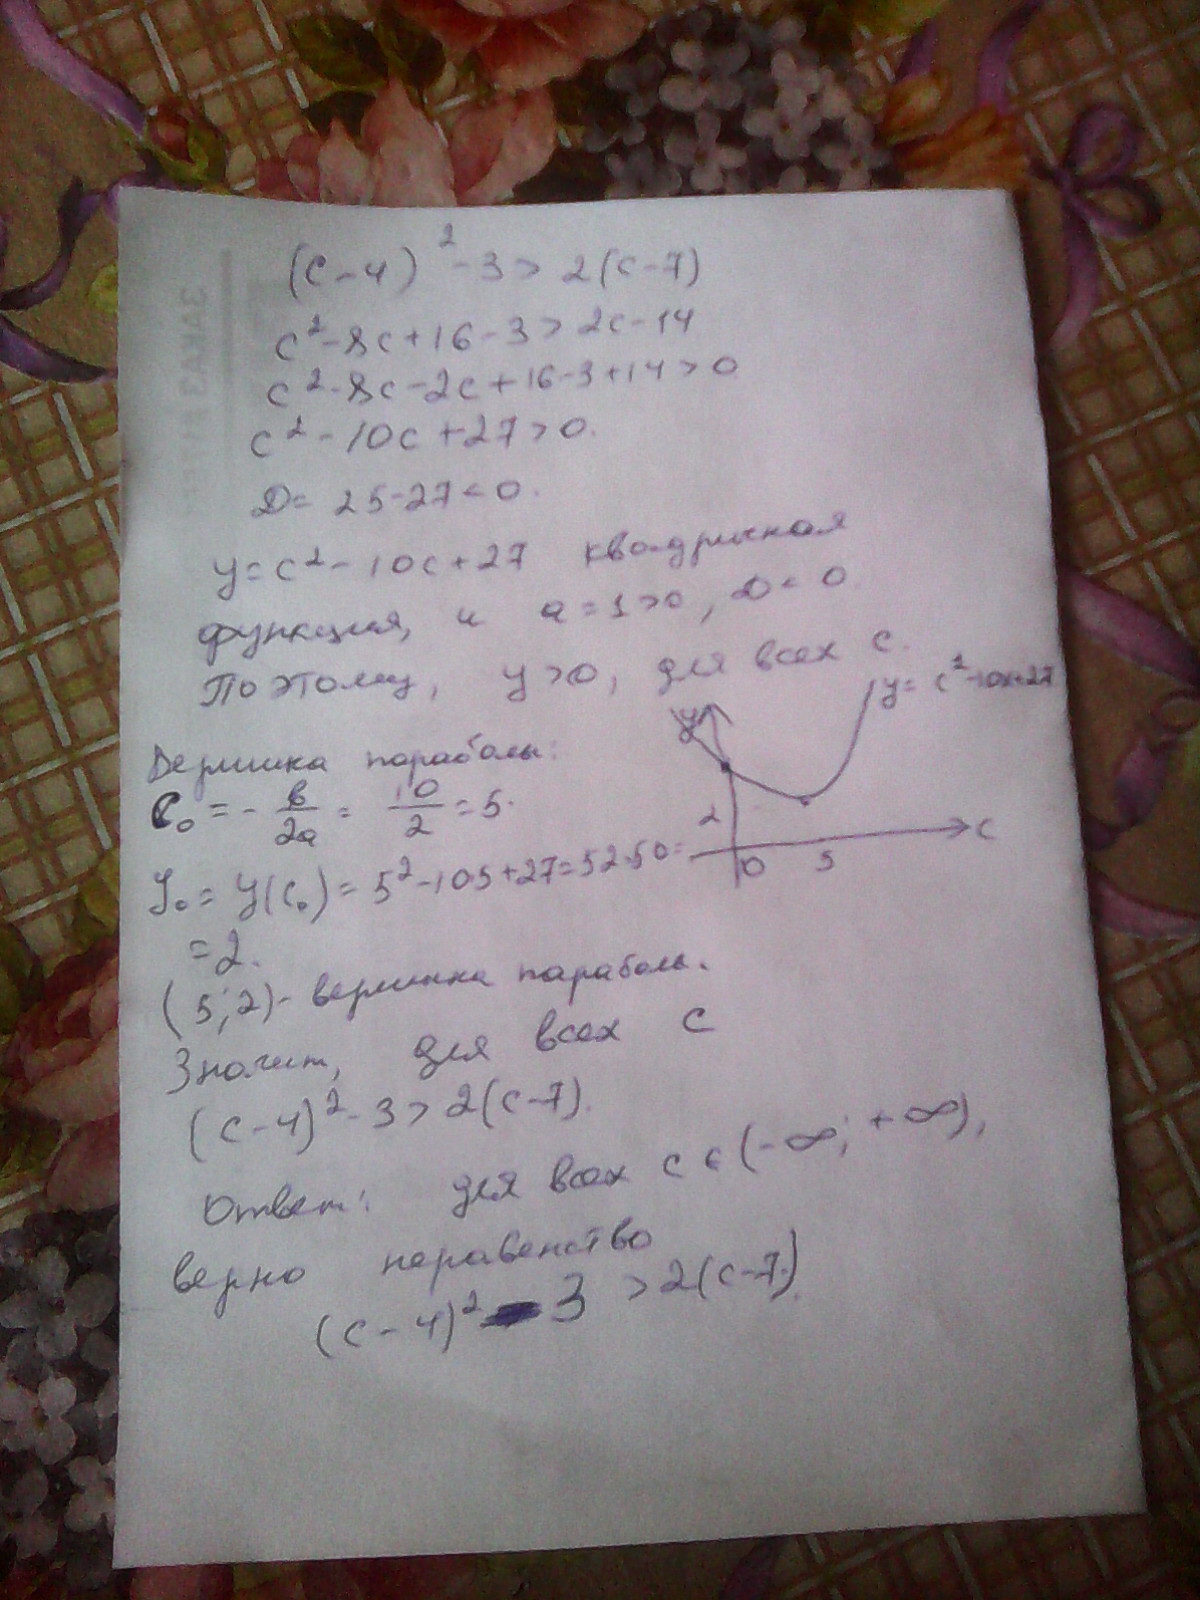 (c-4)² - 3 > 2(c-7)
c² - 8c + 16 - 3 > 2c - 14
c² - 8c - 2c + 16 - 3 + 14 > 0
c² - 10c + 27 > 0.
D = 25 - 27 < 0.
y = c² - 10c + 27 квадричная
функция, и a = 1 > 0, D < 0.
Поэтому, y > 0, для всех c.
y = c² - 10c + 27
y
2
0
5
c
Вершика параболы:
c₀ = - в/2a = 10/2 = 5.
y₀ = y(c₀) = 5² - 10·5 + 27 = 52 - 50 =
= 2.
(5; 2) - вершинка параболы.
Значит, для всех c
(c-4)² - 3 > 2(c-7).
Ответ: для всех c ∈ (-∞; +∞),
верно неравенство
(c-4)² - 3 > 2(c-7).